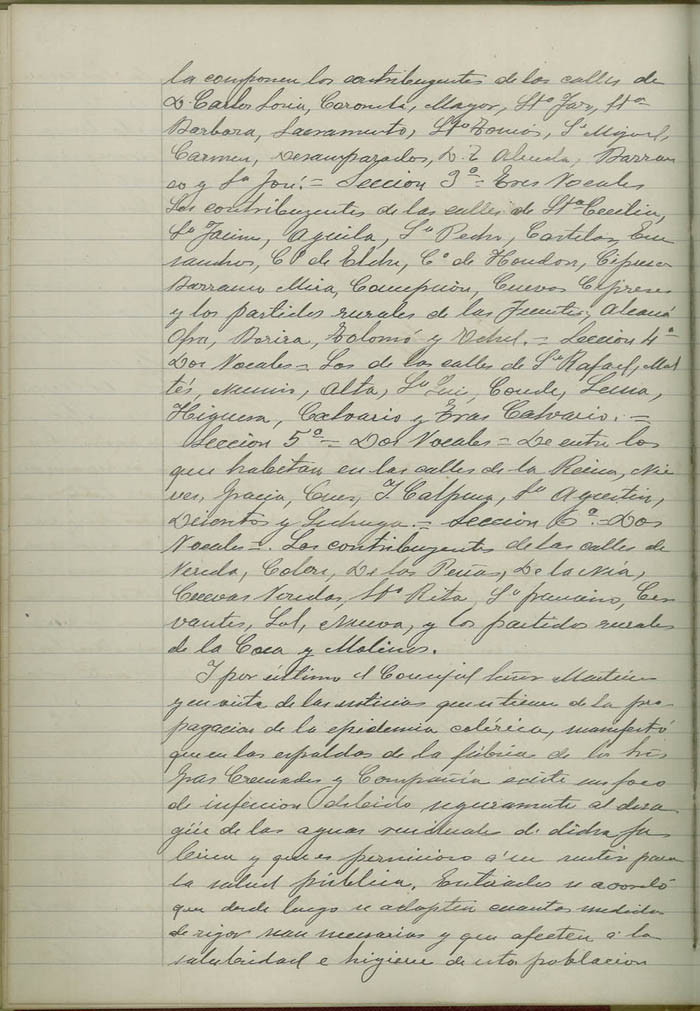 la componen los contribuyentes de las calles de
D. Carlos Soria, Coronda, Mayor, Stº Faz, Stª
Barbara, Sacramento, Stº Tomás, Sn Miguel,
Carmen, Desamparados, D. T. Abenda, Barran
co y Sn José. = Sección 3ª = Tres Vocales
Los contribuyentes de las calles de Stª Cecilia,
Sn Jaime, Aguila, Sn Pedro, Castelar, En
sanche, Cº de Elche, Cº de Hondon, Cipreses
Barranco Mira, Concepcion, Cuevas Cipreses
y los partidos rurales de las Fuentes, Alcaná
Ofra, Borisa, Tolomó y Uchel. = Sección 4ª
Dos Vocales = Los de las calles de Sn Rafael, Mal
tés, Alta, Sn Luis, Conde, Lema,
Higuera, Calvario y Eras Calvario. =
Seccion 5ª = Dos Vocales = De entre los
que habitan en las calles de la Reina, Nie
ves, Gracia, Cruz, F. Calpena, Sn Agustin,
Desiertos y Lechuga. = Sección 6ª = Dos
Vocales =. Los contribuyentes de las calles de
Vereda, Colon, De las Peñas, De la Mia,
Cuevas Nordas, Stª Rita, Sn Francisco, Cer
vantes, Sol, Nueva, y los partidos rurales
de la Coca y Molinos.
Y por último el Concejal Señor Martinez
y en vista de las noticias que se tienen de la pro
pagacion de la epidemia colérica, manifestó
que en las espaldas de la fábrica de los Sres
Gras Cremades y Compañía existe un foco
de infeccion debido seguramente al desa
güe de las aguas residuales de dicha fá
brica y que es pernicioso á su sentir para
la salud pública. Enterados se acordó
que desde luego se adopten cuantas medidas
de rigor sean necesarias y que afecten á la
salubridad e higiene de esta poblacion